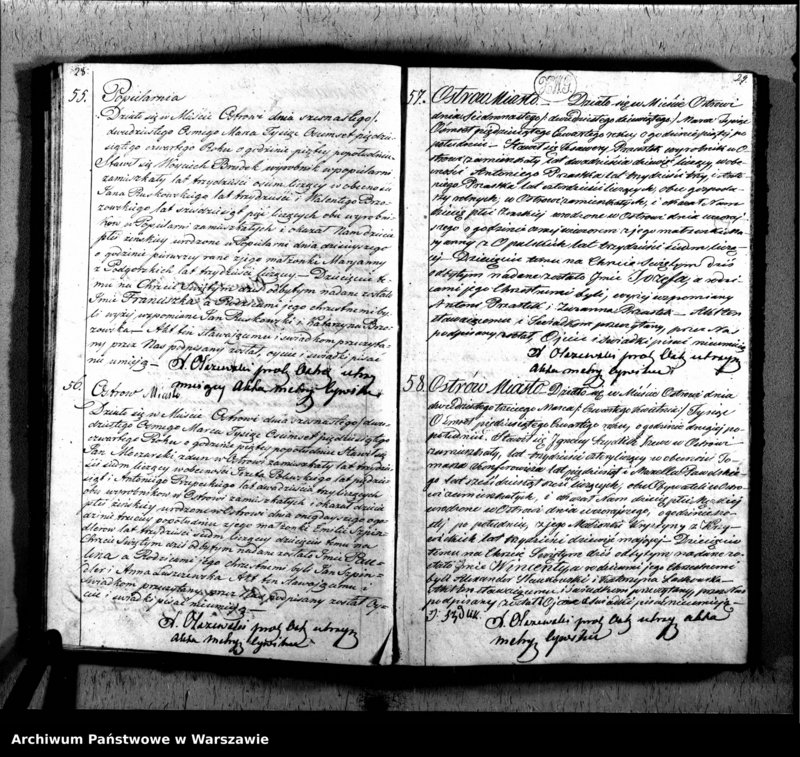 28.
55. Popielarnia
Działo się w Mieście Ostrowi dnia szesnastego/
dwudziestego Osmego Marca Tysiąc Osmset pięćdzie-
siątego czwartego Roku o godzinie piątej popołudniu
Stawił się Wojciech Brudek wyrobnik w popielarni
zamieszkały lat trzydzieści osm liczący w obecności
Jana Ruskowskiego lat trzydzieści i Walentego Brzo-
zowskiego lat sześdziesiąt pięć liczących obu wyrobni-
ków w Popielarni zamieszkałych i okazał Nam dziecie
płci żeńskiej urodzone w Popielarni dnia dzisiejszego
o godzinie pierwszej rano z jego małżonki Maryanny
z Podgorskich lat trzydzieści liczącej — Dziecięciu te-
mu na Chrzcie Świętym dziś odbytym nadane zostało
Imie Franciszka, a Rodzicami jego chrzestnemi by-
li wyżej wspomniony Jan Ruskowski i Katarzyna Brzo-
zowska — Akt ten stawającemu i świadkom przeczyta-
ny przez Nas podpisany został, ojciec i świadki pisać
nie umieją — X. Olszewski prob. Ostr. utrzy-
mujący Akta metryk cywilne
56. Ostrow Miasto
Działo się w Mieście Ostrowi dnia szesnastego/ dwu-
dziestego Osmego Marca Tysiąc Osmset pięćdziesiątego
czwartego Roku o godzinie piątej popołudniu Stawił się
Jan Moczarski zdun w Ostrowi zamieszkały lat trzydzie-
ści siedm liczący w obecności lat pięćdzie-
siąt i Antoniego lat dwadzieścia trzy liczących
obu wyrobników w Ostrowi zamieszkałych i okazał dziecie
płci żeńskiej urodzone w Ostrowi dnia onegdayszego o go-
dzinie trzeciej popołudniu z jego małżonki Emilii Szpin-
dlerów lat trzydzieści siedm liczącej dziecięciu temu na
Chrzcie Świętym dziś odbytym nadane zostało Imie Pau-
lina a Rodzicami jego chrzestnemi byli Jan Szpin-
dler i Anna Akt ten Stawającemu i
świadkom przeczytany przez Nas podpisany został Oj-
ciec i świadki pisać nieumieją —
X. Olszewski prob. Ostr. utrzym
Akta metry cywilne
29.
57. Ostrów Miasto — Działo się w Mieście Ostrowi
dnia siedmnastego/ dwudziestego dziewiątego/ Marca Tysiąc
Osmset pięćdziesiątego Czwartego roku, o godzinie piątej po
południu — Stawił się Xawery Prastek wyrobnik w O-
strowi zamieszkały, lat dwadzieścia dziewięć liczący w obe-
cności Antoniego Prastka lat trzydzieści trzy i Anto-
niego Prastka lat czterdzieści liczących, obu gospoda-
rzy rolnych, w Ostrowi zamieszkałych, i okazał Nam
dziecie płci żeńskiej urodzone w Ostrowi dnia wczoray-
szego o godzinie wieczorem z jego małżonki Ma-
ryanny z Opulskich lat trzydzieści siedm liczą-
cej Dziecięciu temu na Chrzcie Świętym dziś
odbytym nadane zostało Imie Jozefa, a rodzi-
cami jego Chrzestnemi byli, wyżej wspomniony
Antoni Prastek i Zuzanna Prastek — Akt ten
stawającemu i Świadkom przeczytany, przez Nas
podpisany został, Ojciec i Świadki pisać nieumieją
X. Olszewski prob. Ostr. utrzym
Akta metry cywilne
58. Ostrów Miasto Działo się w Mieście Ostrowi dnia
dwudziestego trzeciego Marca/ Czwartego Kwietnia/ Tysiąc
Osmset pięćdziesiątego Czwartego roku, o godzinie drugiej po
południu. Stawił się Ignacy Szewc w Ostrowi
zamieszkały, lat trzydzieści cztery liczący w obecności To-
masza lat pięćdziesiąt i
go lat sześćdziesiąt sześć liczących, obu Obywateli w Ostro-
wi zamieszkałych, i okazał Nam dziecie płci męskiej
urodzone w Ostrowi dnia wczorajszego, o godzinie
po południu, z jego Małżonki Krystyny z
lat trzydzieści dziewięć mającej — Dziecięciu
temu na Chrzcie Świętym dziś odbytym nadane zo-
stało Imie Wincenty a rodzicami jego Chrzestnemi
byli Alexander i Katarzyna —
Akt ten stawającemu i Świadkom przeczytany, przez Nas
podpisany został Ojciec i Świadki pisać nieumieją —
X. Olszewski prob. Ostr. utrzy Akta
metry cywilne
Archiwum Państwowe w Warszawie